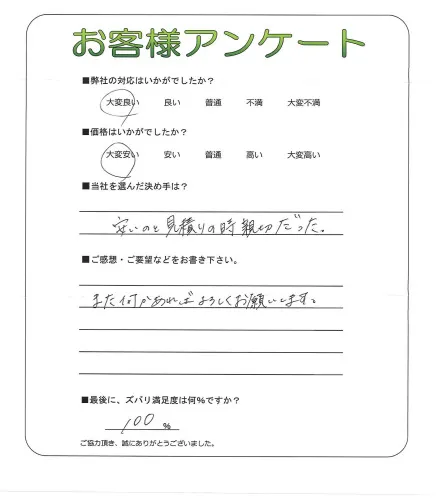 お客様アンケート
■弊社の対応はいかがでしたか？
大変良い 良い 普通 不満 大変不満
■価格はいかがでしたか？
大変安い 安い 普通 高い 大変高い
■当社を選んだ決め手は？
安いのと見積りの時親切だった。
■ご感想・ご要望などをお書き下さい。
また何かあればよろしくお願いします。
■最後に、ズバリ満足度は何%ですか？
100 %
ご協力頂き、誠にありがとうございました。